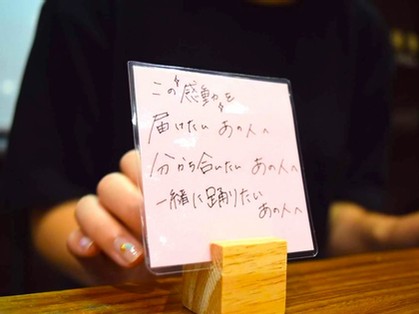 この"感動"を
届けたい あの人へ
分かち合いたい あの人へ
一緒に踊りたい
あの人へ